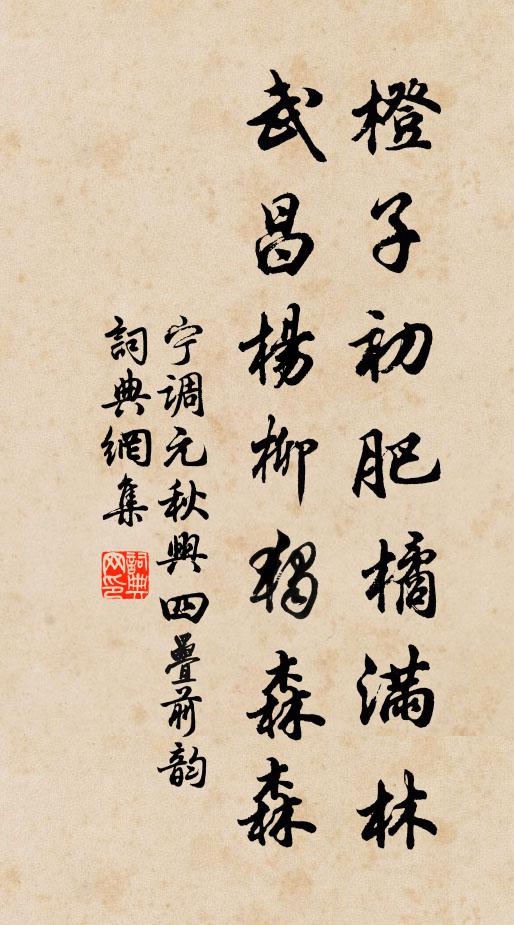 橙子初肥橘满林
武昌楊柳獨森森
宁调元秋興四疊前韵
詞典網集
詞典網印